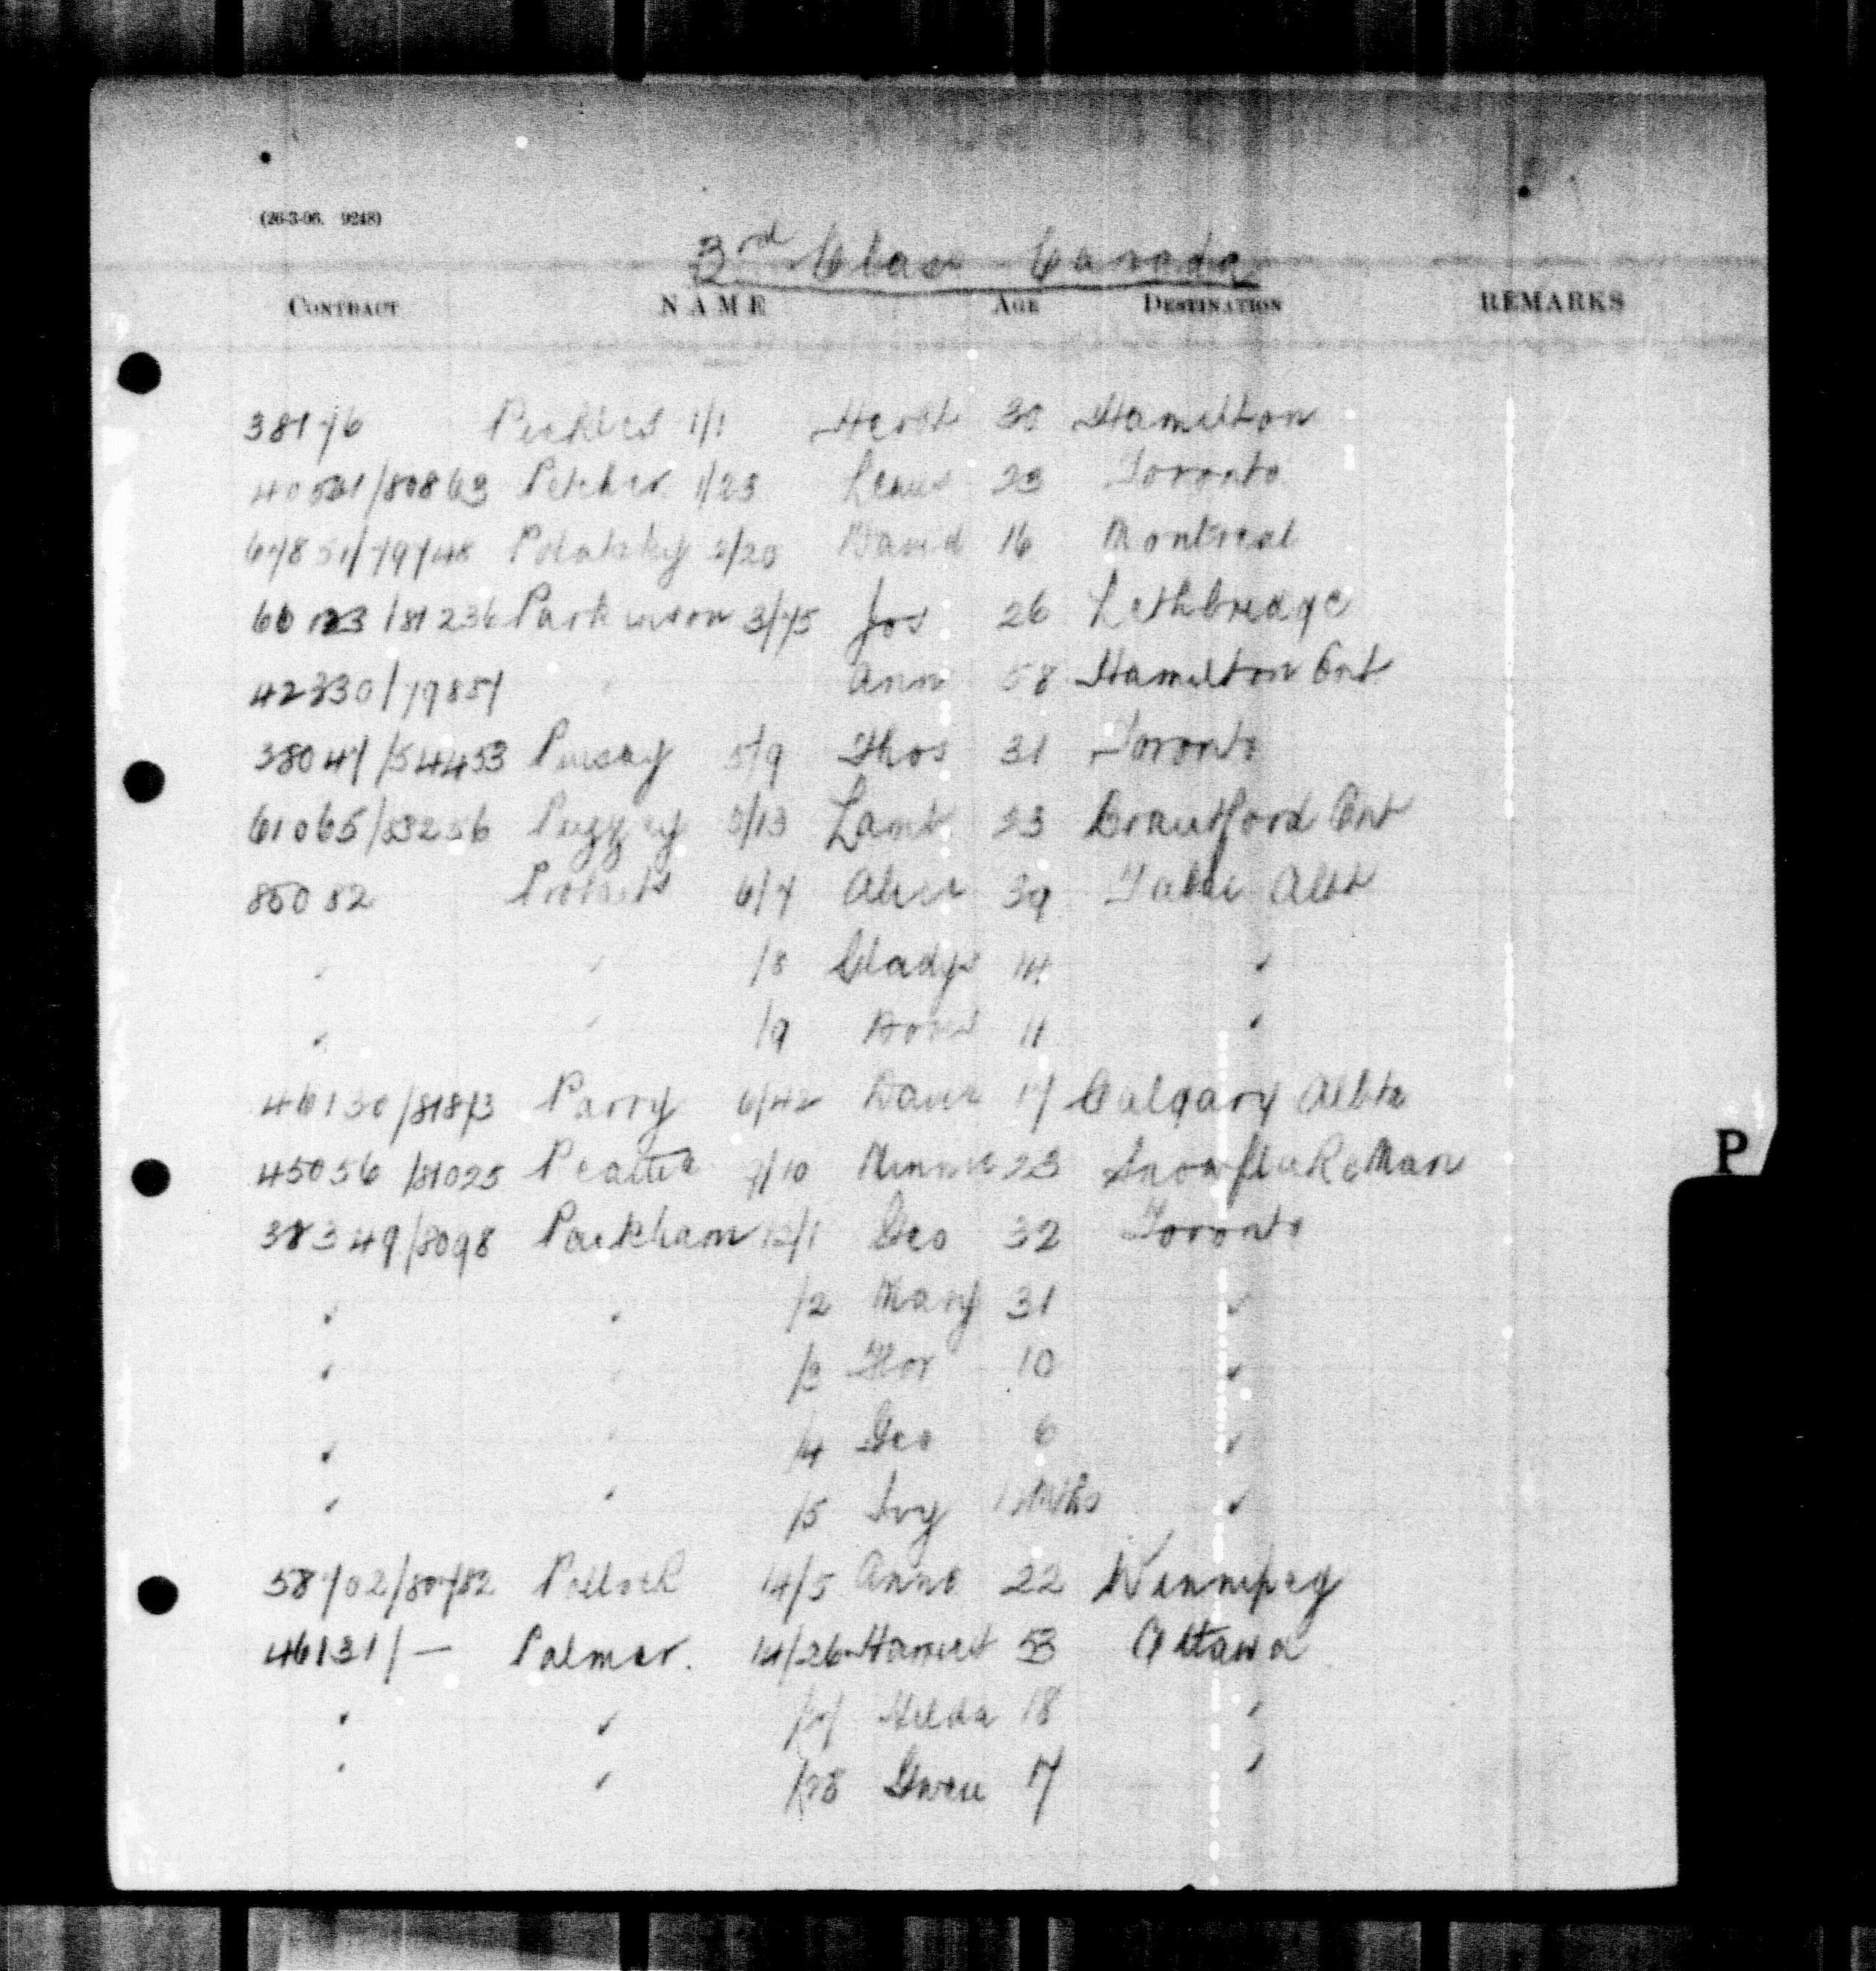 (26-3-06. 9248)
3rd Class Canada
CONTRACT NAME AGE DESTINATION REMARKS
38176 Peckles 1/1 30 Hamilton
40561/80863 Pitcher 1/23 Lewis 23 Toronto
67851/79748 Polatsky 2/20 David 16 Montreal
81236 Parkinson 3/75 Jos 26 Lethbridge
42330/79851 Ann 58 Hamilton Ont
38047/54453 Pursay 5/9 Thos 31 Toronto
61065/83256 Puzzey 5/13 23 Brantford Ont
85082 6/7 Alice 39 Taber Alta
" " /8 Gladys 14 "
" " /9 Doris 11 "
46130/81873 Parry 6/42 17 Calgary Alta
45056/81025 7/10 Minnie 23 Snowflake Man
38349/8098 Packham 12/1 Geo 32 Toronto
" " /2 Mary 31 "
" " /3 10 "
" " /4 Geo 6 "
" " /5 Ivy Mths "
58702/80782 Pollock 14/5 Anna 22 Winnipeg
46131/— Palmer. 14/26 Harriet 53 Ottawa
" " /27 Hilda 18 "
" " /28 Gwen 7 "
P